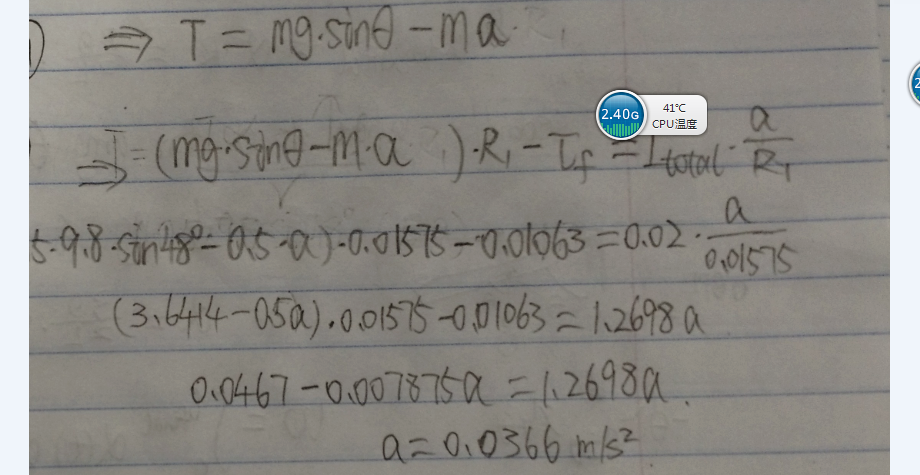 ) ⇒ T = mg·sinθ - ma.
⇒ = (mg·sinθ - m·a )·R₁ - τf = I total · a/R₁
5·9.8·sin48° - 0.5·a)·0.01575 - 0.01063 = 0.02 · a/0.01575
(3.6414 - 0.5a)·0.01575 - 0.01063 = 1.2698a
0.0467 - 0.007875a = 1.2698a.
a = 0.0366 m/s²
2.40G
41℃
CPU温度
2